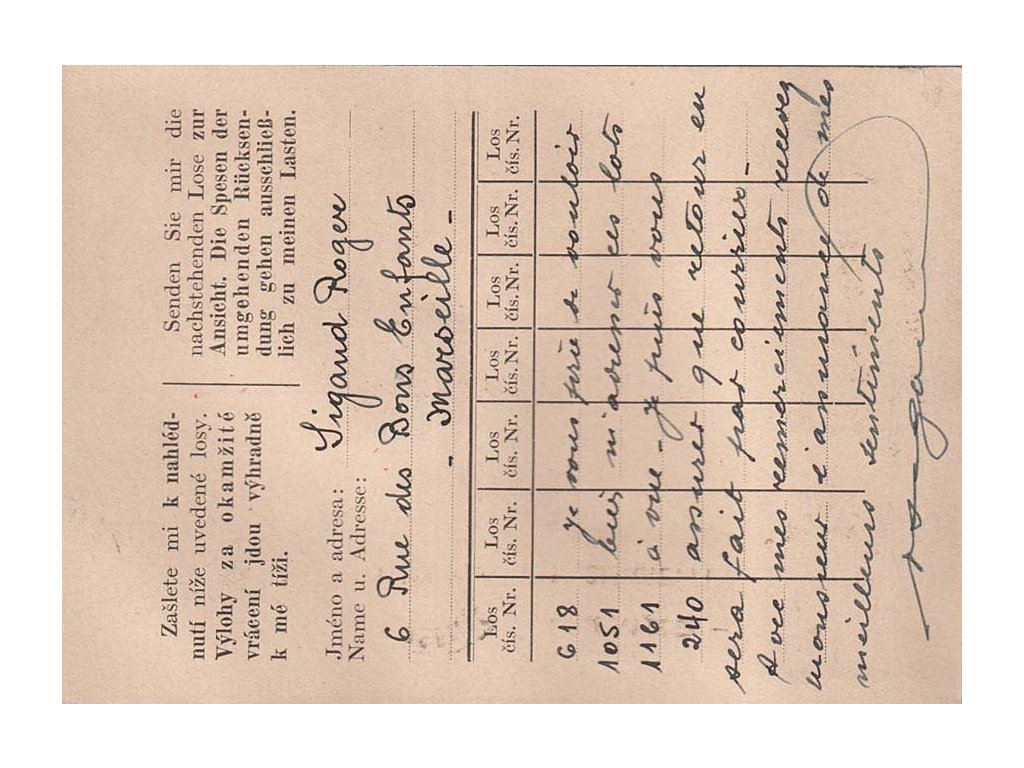 Zašlete mi k nahléd-
nutí níže uvedené losy.
Výlohy za okamžité
vrácení jdou výhradně
k mé tíži.
Senden Sie mir die
nachstehenden Lose zur
Ansicht. Die Spesen der
umgehenden Rücksen-
dung gehen ausschließ-
lich zu meinen Lasten.
Jméno a adresa:
Name u. Adresse:
Sigaud Roger
6 Rue des Bons Enfants
- Marseille -
Los čís. Nr. Los čís. Nr. Los čís. Nr. Los čís. Nr. Los čís. Nr. Los čís. Nr. Los čís. Nr.
618 Je vous prie de vouloir
1051 bien m'adresser ces lots
1161 à vue - Je puis vous
240 assurer que retour en
sera fait par courrier -
Avec mes remerciements recevez
monsieur l'assurance de mes
meilleurs sentiments